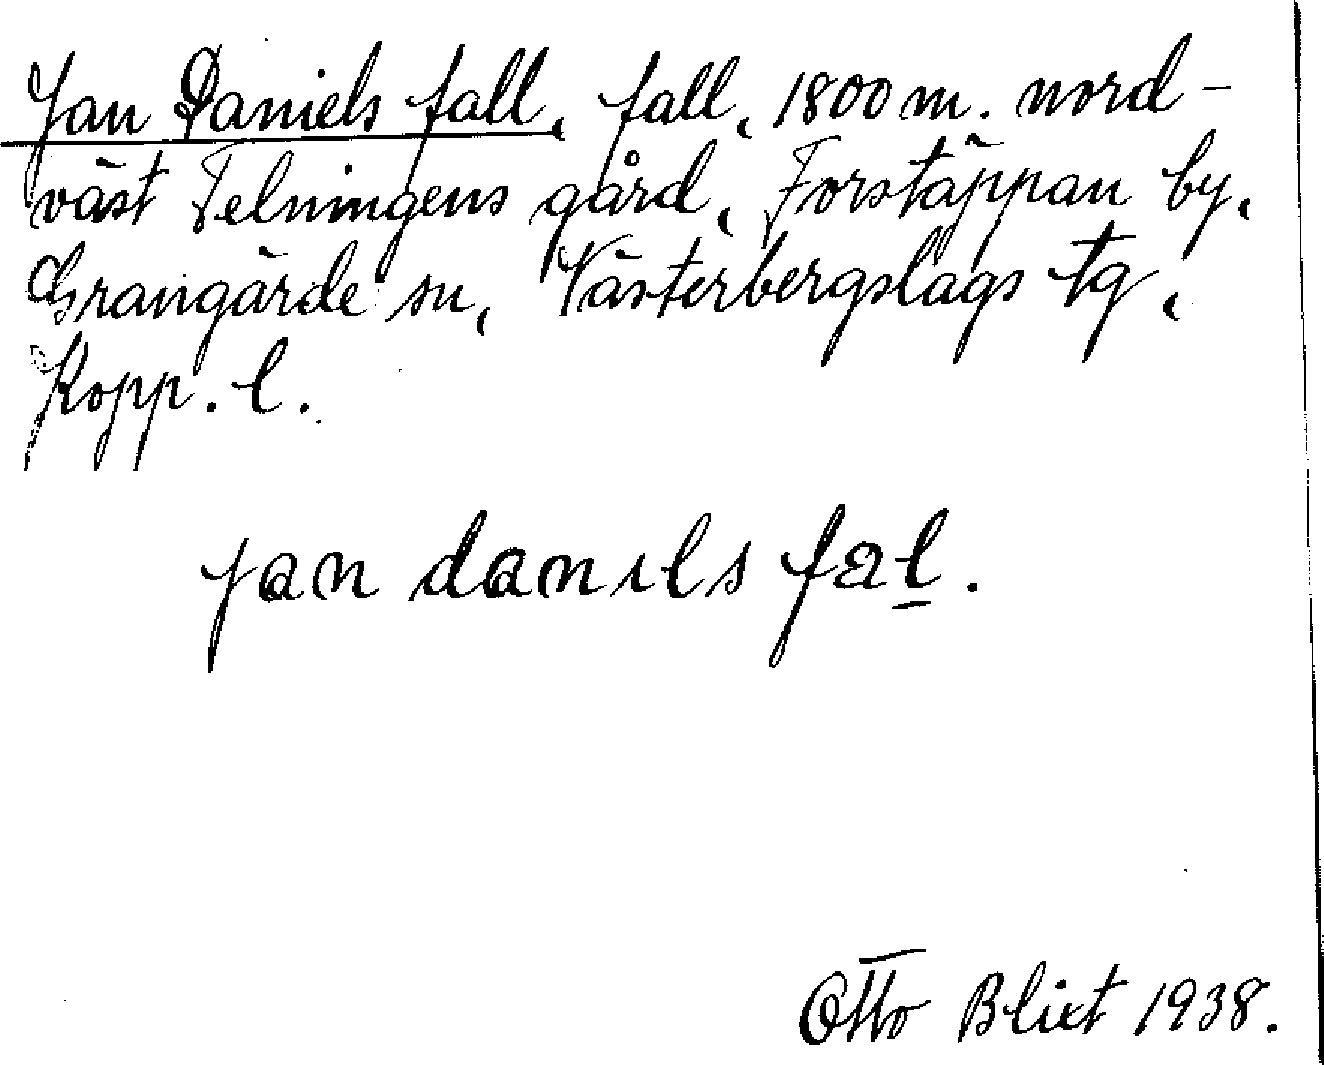 Jan Daniels fall, fall, 1800 m. nord-
väst Telningens gård, Forstäppan by,
Grangärde sn, Västerbergslags tg,
Kopp. l.
jan danils fal.
Otto Blixt 1938.